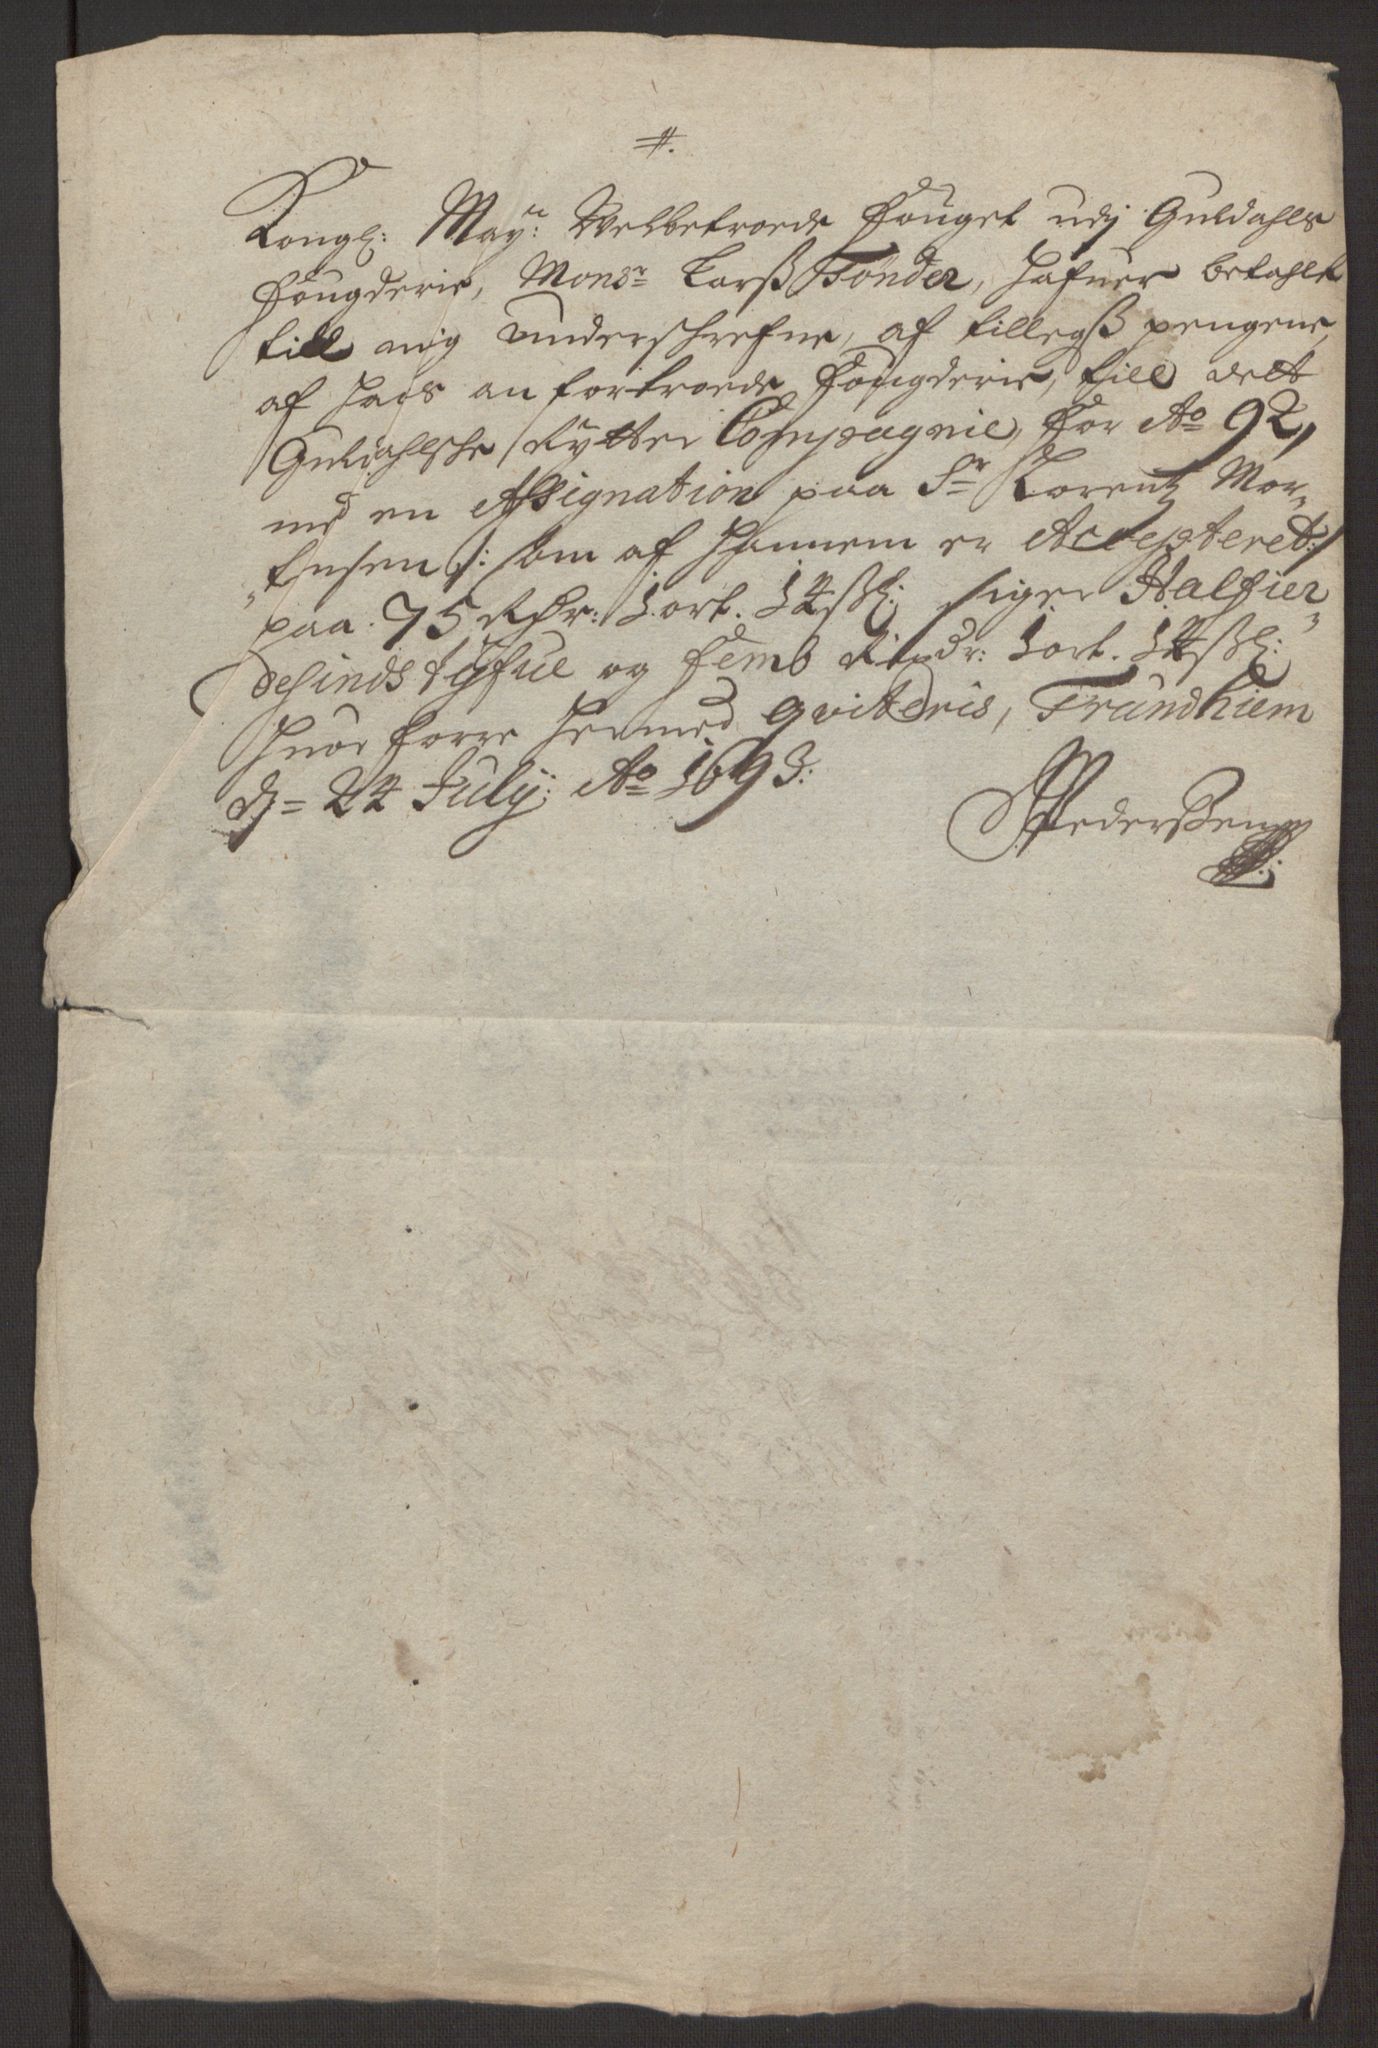 #.
Kongl: May:tz Velbetroede Fouget udj Guldahls
Fougderie, Mons:r Larß Tønder, hafuer betahlt
till mig underschrefne, af tillegß pengene
af hans anfortroede Fougderie, till det
Guldahlske Rytter Compagnie, for Ao 92,
med en Assignation paa Sr Lorentz Mor„
„tensen /: som af hannem er Accepteret:/
paa 75 Rdr: 1 ort. 14 ßl: siger Halfier„
desinds tyfue og femb Rixdr: 1 ort. 14 ßl:
huor forre hermed qviteris, Trundhiem
dj= 24 July: Ao 1693:
PPederßen